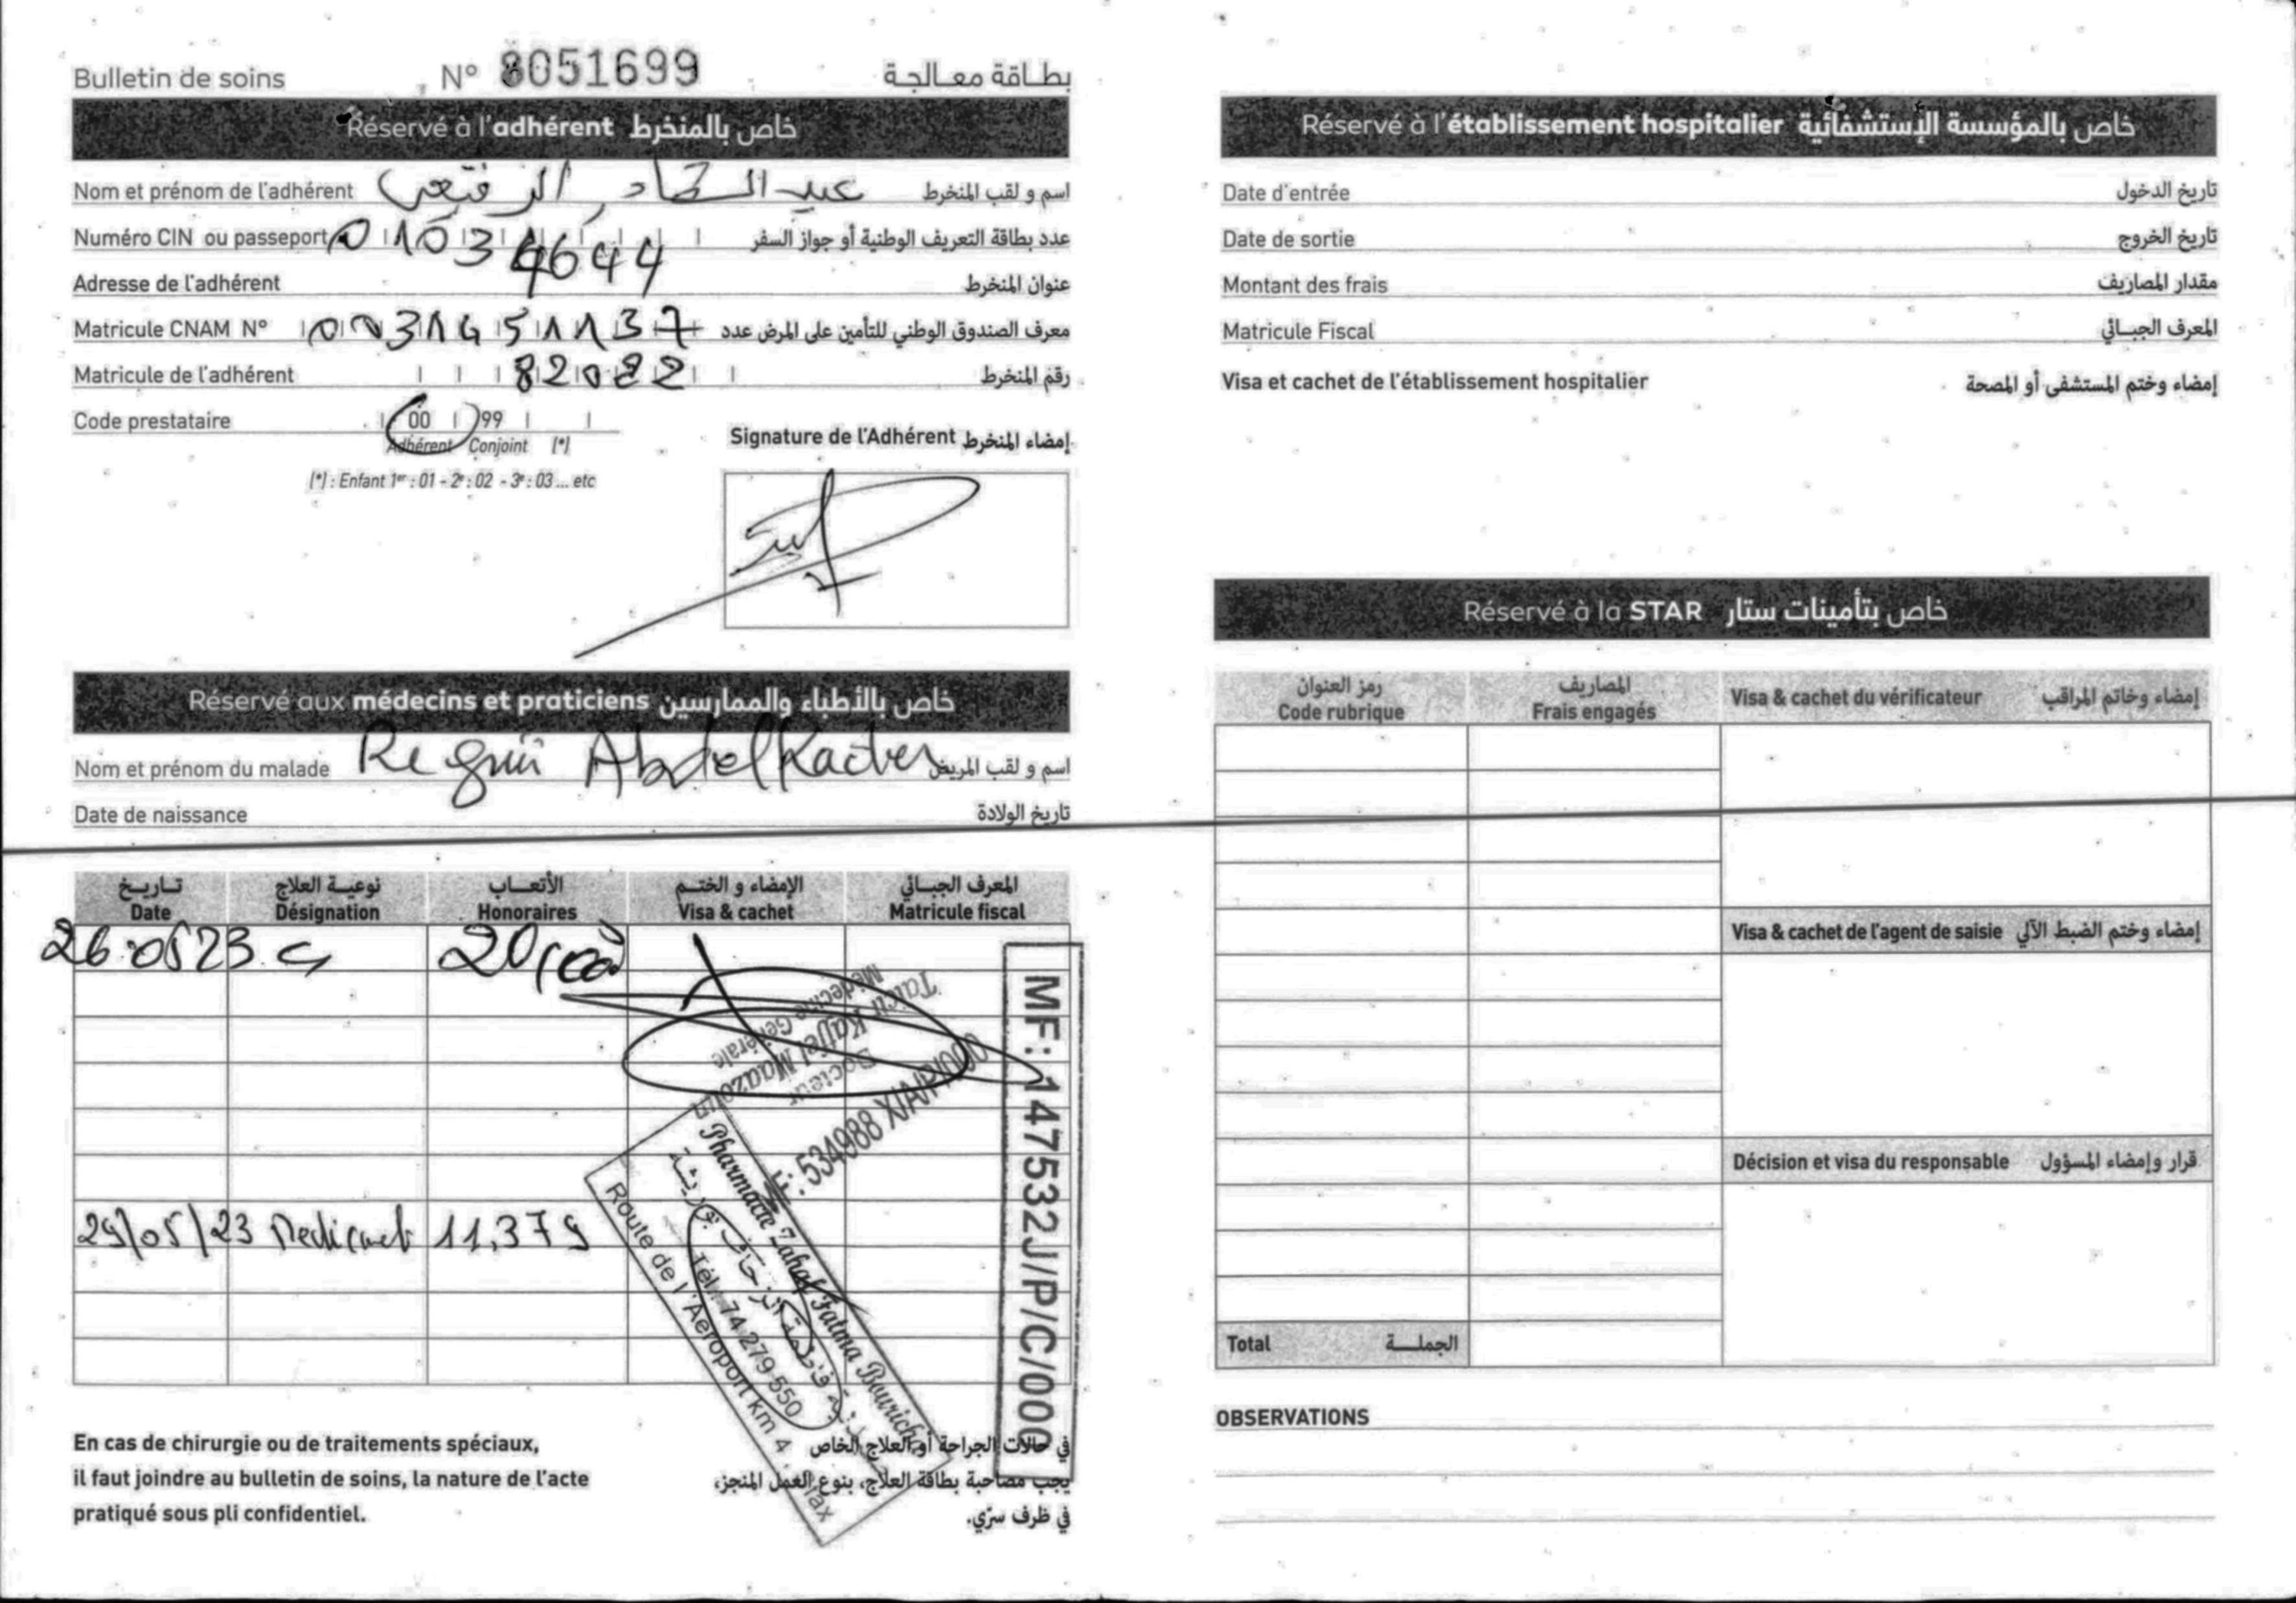 Bulletin de soins N° 8051699 بطاقة معالجة
Réservé à l'adhérent خاص بالمنخرط
Nom et prénom de l'adhérent عبد القادر الرقيعي اسم و لقب المنخرط
Numéro CIN ou passeport 01034644 عدد بطاقة التعريف الوطنية أو جواز السفر
Adresse de l'adhérent عنوان المنخرط
Matricule CNAM N° 0031451137 معرف الصندوق الوطني للتأمين على المرض عدد
Matricule de l'adhérent 82082 رقم المنخرط
Code prestataire 00 99
Adhérent Conjoint (*)
(*) : Enfant 1er : 01 - 2e : 02 - 3e : 03 ... etc
Signature de l'Adhérent إمضاء المنخرط
Réservé aux médecins et praticiens خاص بالأطباء والممارسين
Nom et prénom du malade Reguii Abdelkader اسم و لقب المريض
Date de naissance تاريخ الولادة
تاريخ نوعية العلاج الأتعاب الإمضاء و الختم المعرف الجبائي
Date Désignation Honoraires Visa & cachet Matricule fiscal
26.05 23 C 20,000
Docteur
Tarek Kaffel Maazoun
Médecine Générale
534988
MF: 1147532J/P/C/000
29/05/23 Medicament 11,379
Pharmacie Zahaf Fatma Bouricha
Tél.: 74 279 550
Route de l'Aéroport km 4
En cas de chirurgie ou de traitements spéciaux,
il faut joindre au bulletin de soins, la nature de l'acte
pratiqué sous pli confidentiel.
في حالات الجراحة أو العلاج الخاص
يجب مصاحبة بطاقة العلاج، بنوع العمل المنجز،
في ظرف سرّي.
Réservé à l'établissement hospitalier خاص بالمؤسسة الإستشفائية
Date d'entrée تاريخ الدخول
Date de sortie تاريخ الخروج
Montant des frais مقدار المصاريف
Matricule Fiscal المعرف الجبائي
Visa et cachet de l'établissement hospitalier إمضاء وختم المستشفى أو المصحة
Réservé à la STAR خاص بتأمينات ستار
رمز العنوان المصاريف
Code rubrique Frais engagés Visa & cachet du vérificateur إمضاء وخاتم المراقب
Visa & cachet de l'agent de saisie إمضاء وختم الضبط الآلي
Décision et visa du responsable قرار وإمضاء المسؤول
Total الجملة
OBSERVATIONS